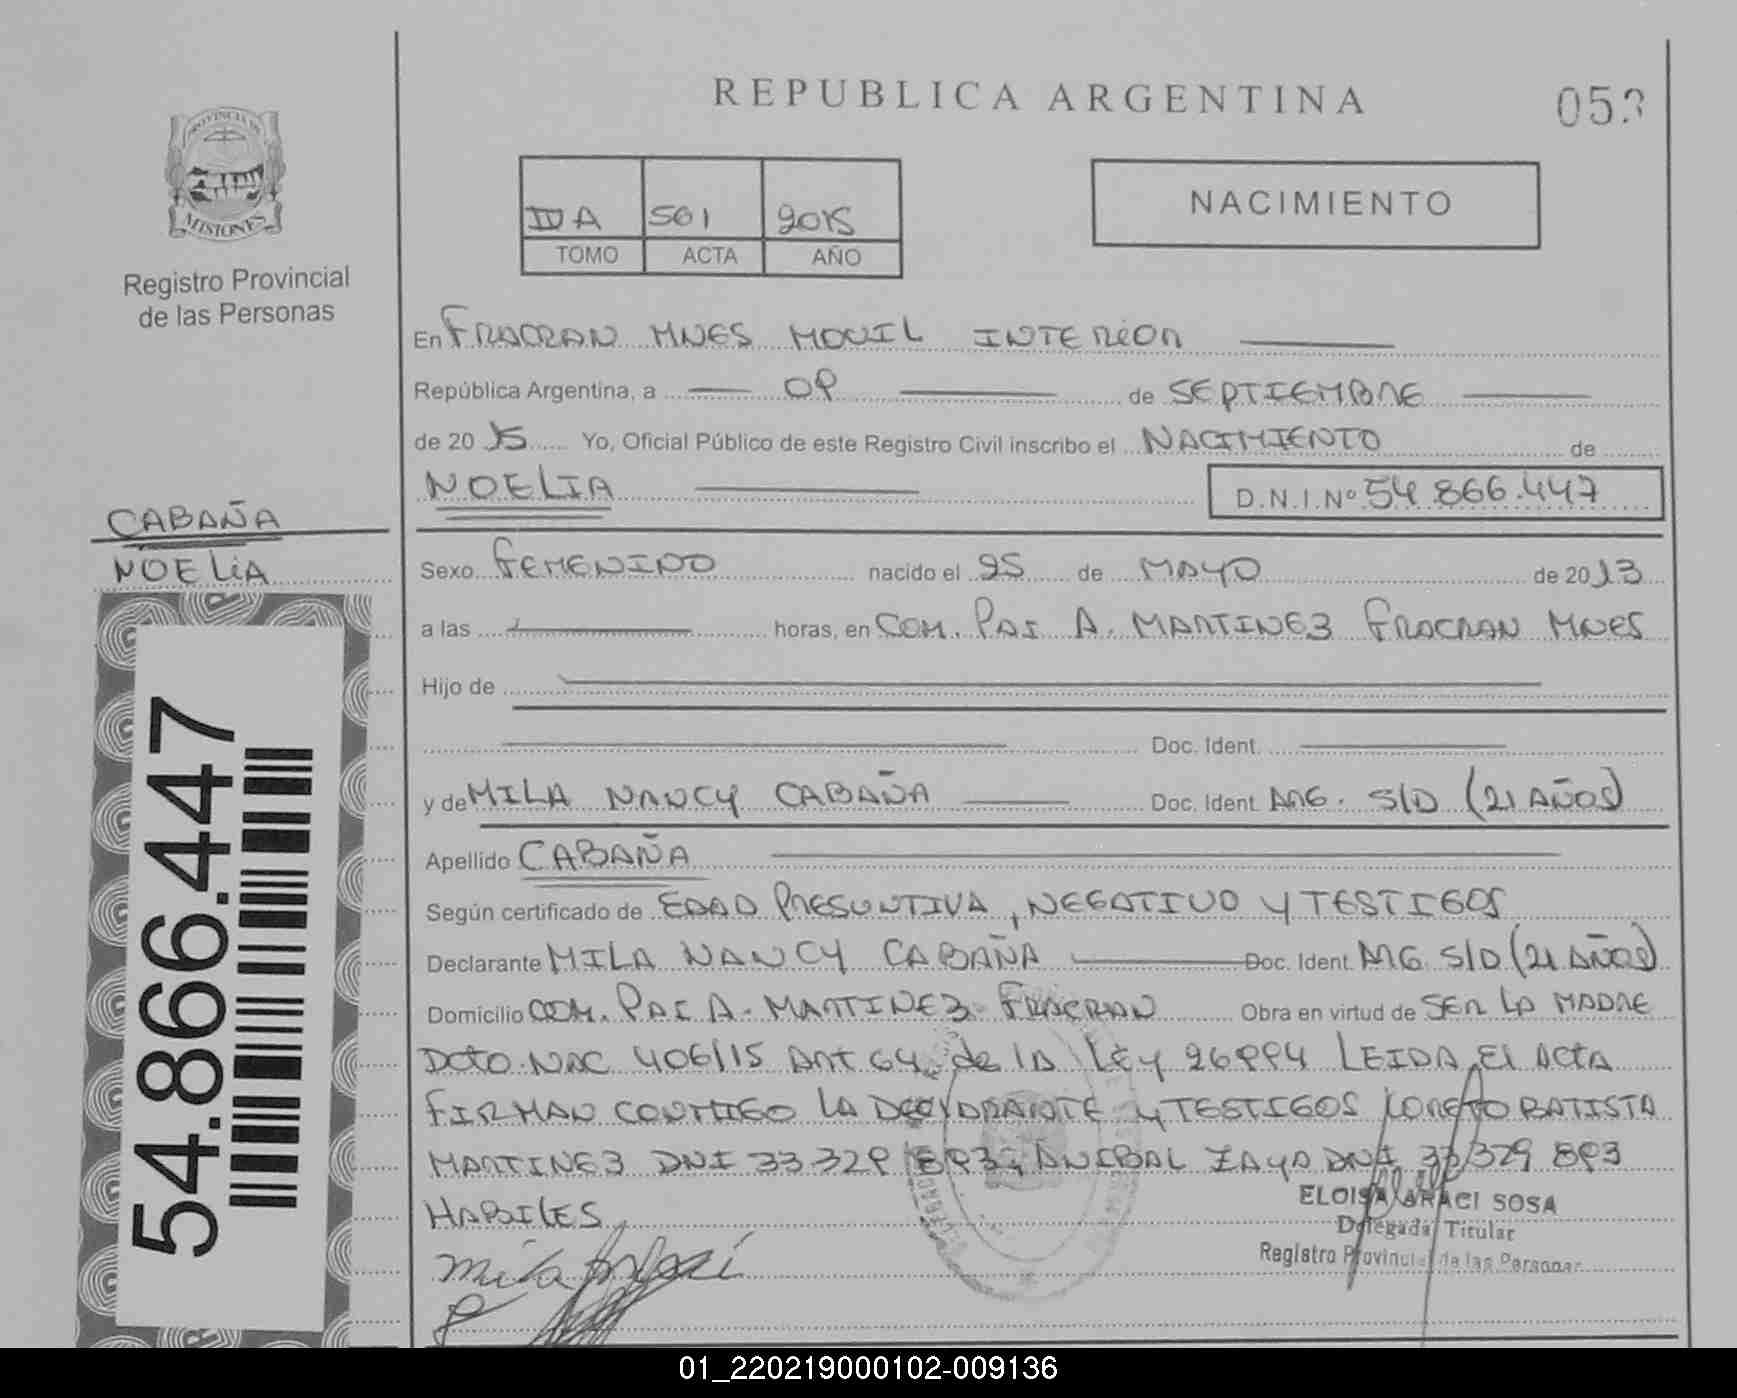 REPUBLICA ARGENTINA
053
PROVINCIA DE
MISIONES
Registro Provincial
de las Personas
II A 501 2015
TOMO ACTA AÑO
NACIMIENTO
En FRACRAN MNES MOVIL INTERIOR
República Argentina, a 09 de SEPTIEMBRE
de 2015 Yo, Oficial Público de este Registro Civil inscribo el NACIMIENTO de
NOELIA
D.N.I.Nº 54.866.447
CABAÑA
NOELIA
Sexo FEMENINO nacido el 25 de MAYO de 2013
a las horas, en COM. PAI A. MARTINEZ FRACRAN MNES
Hijo de
Doc. Ident.
y de MILA NANCY CABAÑA Doc. Ident. ARG. S/D (21 AÑOS)
Apellido CABAÑA
Según certificado de EDAD PRESUNTIVA, NEGATIVO Y TESTIGOS
Declarante MILA NANCY CABAÑA Doc. Ident. ARG S/D (21 AÑOS)
Domicilio COM. PAI A. MARTINEZ FRACRAN Obra en virtud de SER LA MADRE
DCTO. NAC 406/15 ART 64 de la LEY 26994 LEIDA El ACTA
FIRMAN CONMIGO LA DECLARANTE y TESTIGOS LORETO BATISTA
MARTINEZ DNI 33 329 893, ANIBAL ZAYA DNI 33 329 893
HABILES
ELOISA ARACI SOSA
Delegada Titular
Registro Provincial de las Personas
Mila
54.866.447
01_220219000102-009136